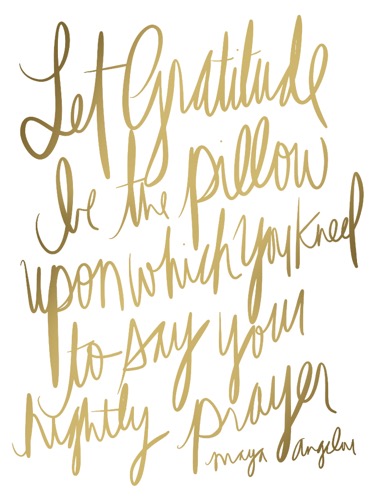 Let Gratitude
be the pillow
upon which you kneel
to say your
nightly prayer
maya angelou